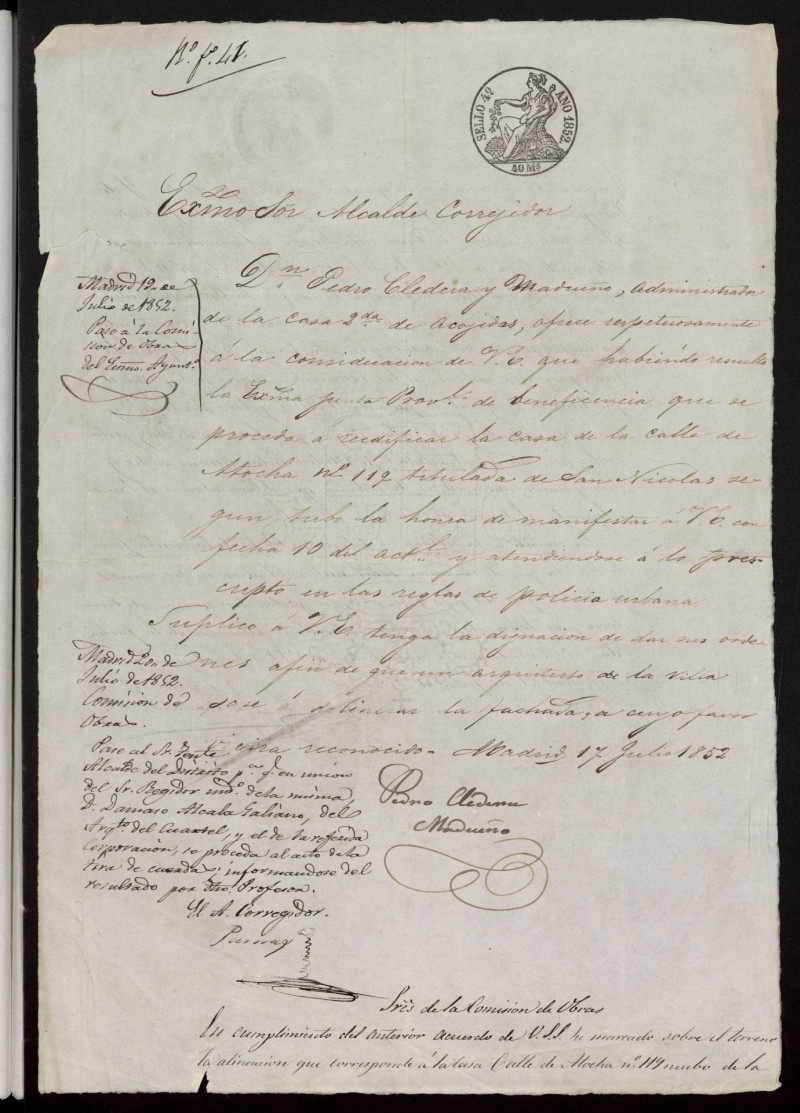 Nº fº 41.
SELLO 4º AÑO 1852.
40 Mˢ
Exmo Sor Alcalde Correjidor
Dⁿ. Pedro Cledera y Madueño, administrador
de la casa 2ᵈᵃ de acojidas, ofrece respetuosamente
á la consideracion de V.E. que habiendo resuelto
la Exma junta Provˡ. de beneficencia que se
proceda á reedificar la casa de la calle de
Atocha nº 117 titulada de San Nicolas se-
gun tube la honra de manifestar á V.E. con
fecha 10 del actˡ y atendiendose á lo pres-
cripto en las reglas de policia urbana
Suplico á V.E. tenga la dignacion de dar sus orde-
nes afin de que un arquitecto de la villa
pase á delinear la fachada, a cuyo favor
vivira reconocido. Madrid 17 Julio 1852
Pedro Cledera
Madueño
Madrid 19 de
Julio de 1852.
Pase á la Comi-
sion de Obras
del Excmo. Ayuntº.
Madrid 20 de
Julio de 1852.
Comision de
Obras.
Pase al Sr. Tente
Alcalde del Distrito pª. q. en union
del Sr. Regidor indº. de la misma,
D. Damaso Alcala Galiano, del
Arqᵗᵒ. del Cuartel, y el de la referida
Corporacion, se proceda al acto de la
tira de cuerda; informandose del
resultado por dho. Profesor.
El A. Corregidor.
Sres de la Comision de Obras
En cumplimiento del anterior acuerdo de V.S.S. he marcado sobre el terreno
la alineacion que corresponde á la casa Calle de Atocha nº 119 nuebo de la